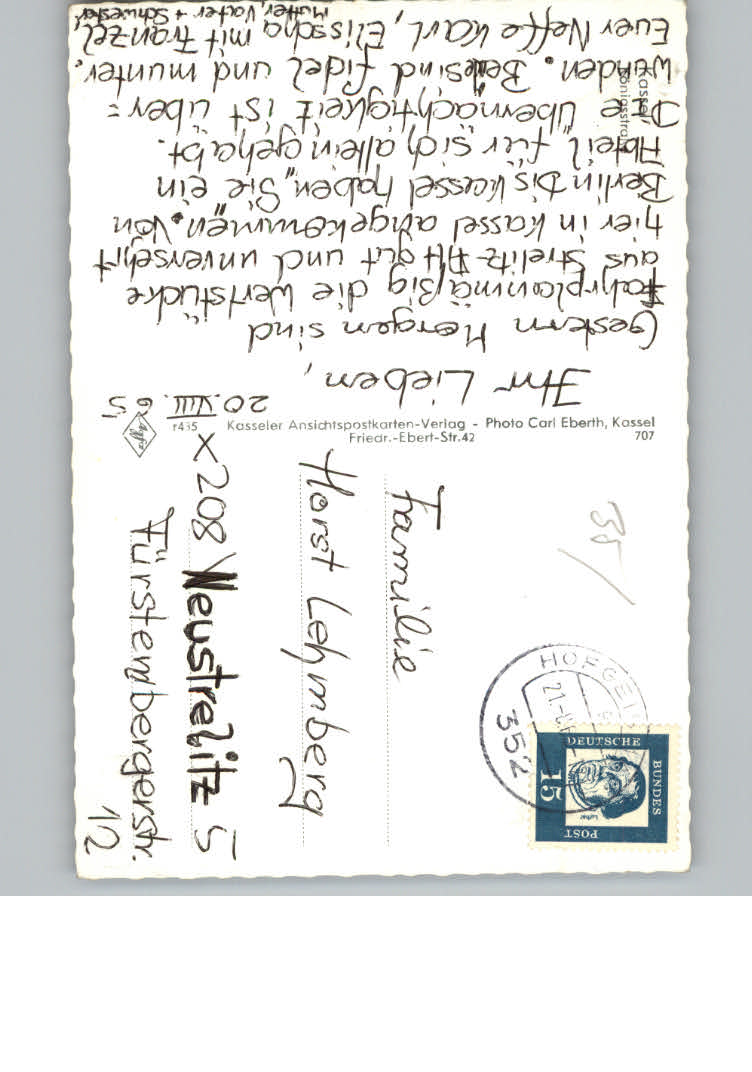 20.VIII.65
Ihr Lieben,
Gestern Morgen sind
fahrplanmäßig die Wertstücke
aus Strelitz Alt gut und unversehrt
hier in Kassel angekommen. Von
Berlin bis Kassel haben "Sie" ein
Abteil für sich allein gehabt.
Die Übernächtigkeit ist über=
wunden. Beide sind fidel und munter.
Euer Neffe Karl, Elisscha mit Franzel
Mutter, Vater + Schwester
Kassel
Agfa
r435 Kasseler Ansichtspostkarten-Verlag - Photo Carl Eberth, Kassel
Friedr.-Ebert-Str.42 707
Familie
Horst Lehmberg
x208 Neustrelitz 5
Fürstenbergerstr.
12
35/
HOFGEI
21.
352
DEUTSCHE
BUNDES
POST
15
Luther